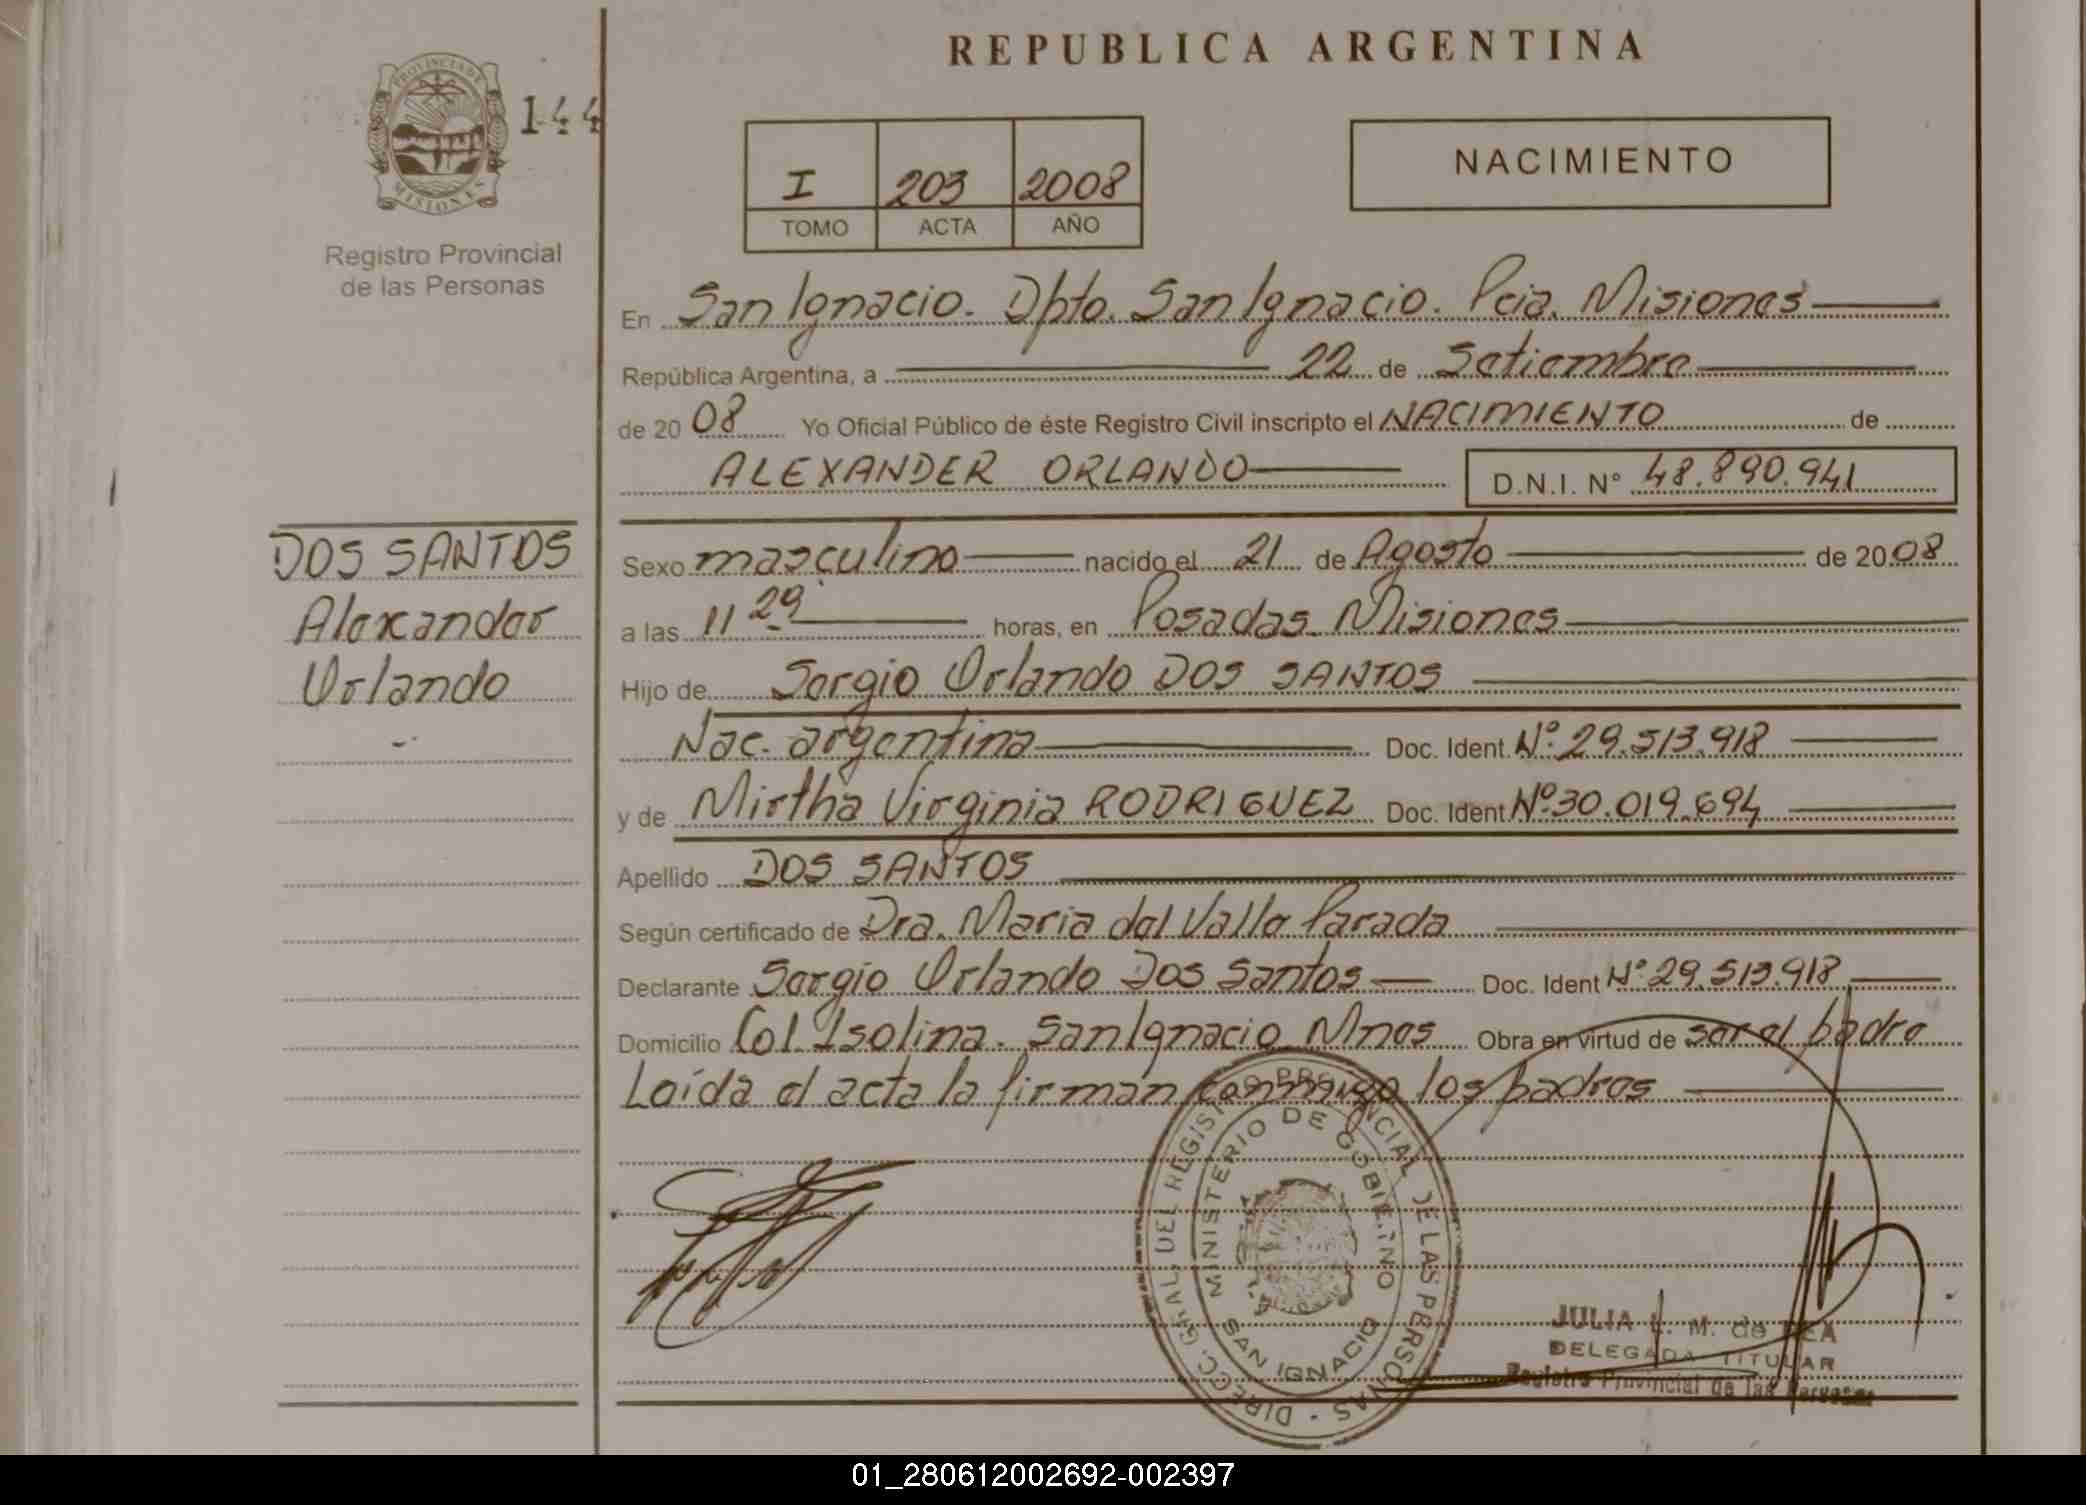 REPUBLICA ARGENTINA
PROVINCIA DE MISIONES
144
Registro Provincial
de las Personas
I 203 2008
TOMO ACTA AÑO
NACIMIENTO
En San Ignacio. Dpto. San Ignacio. Pcia. Misiones
República Argentina, a 22 de Setiembre
de 20 08 Yo Oficial Público de éste Registro Civil inscripto el NACIMIENTO de
ALEXANDER ORLANDO D.N.I. N° 48.890.941
DOS SANTOS
Alexander
Orlando
Sexo masculino nacido el 21 de Agosto de 20 08
a las 11 29 horas, en Posadas. Misiones
Hijo de Sergio Orlando DOS SANTOS
Nac. argentina Doc. Ident. Nº 29.513.918
y de Mirtha Virginia RODRIGUEZ Doc. Ident Nº 30.019.694
Apellido DOS SANTOS
Según certificado de Dra. Maria del Valle Parada
Declarante Sergio Orlando Dos Santos Doc. Ident Nº 29.513.918
Domicilio Col. Isolina. San Ignacio Mnes Obra en virtud de ser el padre
Leída el acta la firman conmigo los padres
DIRECC. GRAL. DEL REGISTRO PROVINCIAL DE LAS PERSONAS
MINISTERIO DE GOBIERNO
SAN IGNACIO
JULIA M. de
DELEGADA TITULAR
Registro Provincial de las Personas
01_280612002692-002397